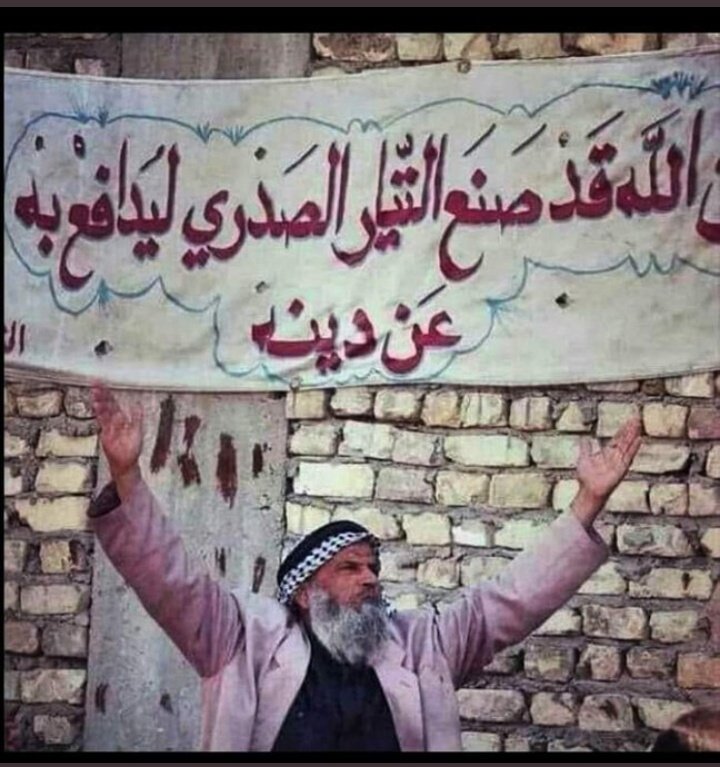 الله قَدْ صَنَعَ التَّيار الصَدْري ليُدَافعْ بهْ
عَن دينهْ